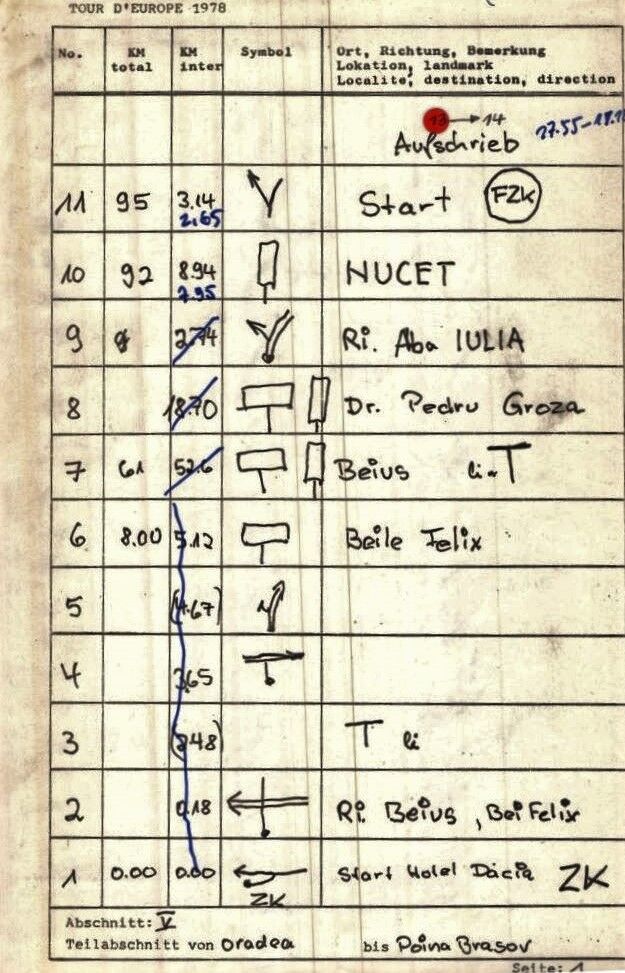 TOUR D'EUROPE 1978
No. KM total KM inter Symbol Ort, Richtung, Bemerkung
Lokation, landmark
Localite, destination, direction
13 → 14
Aufschrieb 17.55-
11 95 3.14 2.65 Start FZK
10 92 8.94 7.95 NUCET
9 2.74 Ri. Aba IULIA
8 18.70 Dr. Pedru Groza
7 61 52.6 Beius li. T
6 8.00 5.12 Beile Felix
5 (4.67)
4 3.65
3 (2.48) T li
2 0.18 Ri. Beius, Bei Felix
1 0.00 0.00 ZK Start Hotel Dacia ZK
Abschnitt: V
Teilabschnitt von Oradea bis Poina Brasov
Seite: 1